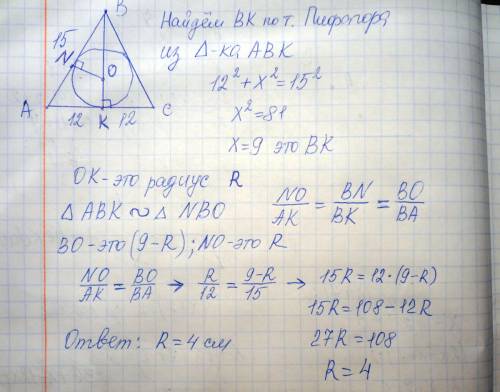 B
Найдём BK по т. Пифагора
15
из Δ-ка ABK
N
O
12² + x² = 15²
x² = 81
A
C
12 K 12
x = 9 это BK
OK - это радиус R
Δ ABK ∾ Δ NBO
NO/AK = BN/BK = BO/BA
BO - это (9-R); NO - это R
NO/AK = BO/BA → R/12 = 9-R/15 → 15R = 12·(9-R)
15R = 108 - 12R
27R = 108
Ответ: R = 4 см
R = 4